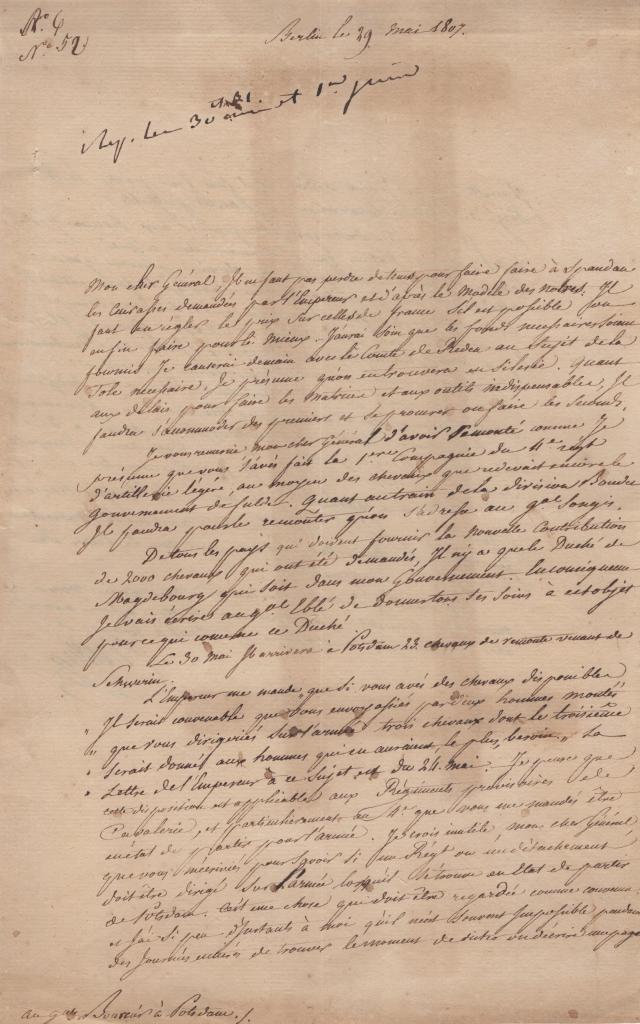 N° 52
Berlin le 29 Mai 1807.
Rep. les 30 et 1er juin
Mon cher Général, Il ne faut pas perdre de tems pour faire faire à Spandau
les Cuirasses demandées par l'Empereur et d'après le Modèle des notres. Il
faut en régler le prix sur celles de france s'il est possible, ou
enfin faire pour le mieux. J'aurai soin que les fonds necessaires soient
fournis. Je causerai demain avec le Comte de Reden au sujet de la
Tole necessaire. Je présume qu'on en trouvera en Silesie. Quant
aux délais pour faire les Matrices et aux outils indispensables, Il
faudra s'accommoder des premiers et se procurer ou faire les seconds.
Je vous remercie mon cher Général d'avoir remonté comme Je
présume que vous l'avés fait la 1ere Compagnie du 4e regt
d'artillerie légère, au moyen des chevaux que redevait encore le
Gouvernement de fulde. Quant au train de la division Boudet
Il faudra pour le remonter qu'on s'adresse au gal Songis.
De tous les pays qui doivent fournir la nouvelle Contribution
de 2000 chevaux qui ont été demandés, Il n'y a que le Duché de
Magdebourg qui soit dans mon Gouvernement. En conséquence
Je vais écrire au gal Eblé de donner tous ses soins à cet objet
pour ce qui concerne ce Duché.
Le 30 Mai Il arrivera à Potsdam 23 chevaux de remonte venant de
Schwerin.
L'Empereur me mande "que si vous avés des chevaux disponibles
" Il serait convenable que vous envoyassiés par deux hommes montés
" que vous dirigeriés sur l'armée trois chevaux dont le troisieme
" serait donné aux hommes qui en auraient le plus besoin. " La
Lettre de l'Empereur à ce sujet est du 24 Mai. Je pense que
cette disposition est applicable aux Régiments provisoires de
Cavalerie, et particulierement au 4e que vous me mandés être
en état de partir pour l'armée. Je crois inutile mon cher Général
que vous m'écriviés pour savoir si un Régt ou un détachement
doit être dirigé sur l'armée lorsqu'il se trouve en Etat de partir
de Potsdam. C'est une chose qui doit être regardée comme convenue
et J'ai si peu d'Instants à moi qu'il m'est souvent impossible pendant
des Journées entières de trouver le moment de dicter ou d'écrire une page
au gal Bourcier à Potsdam.